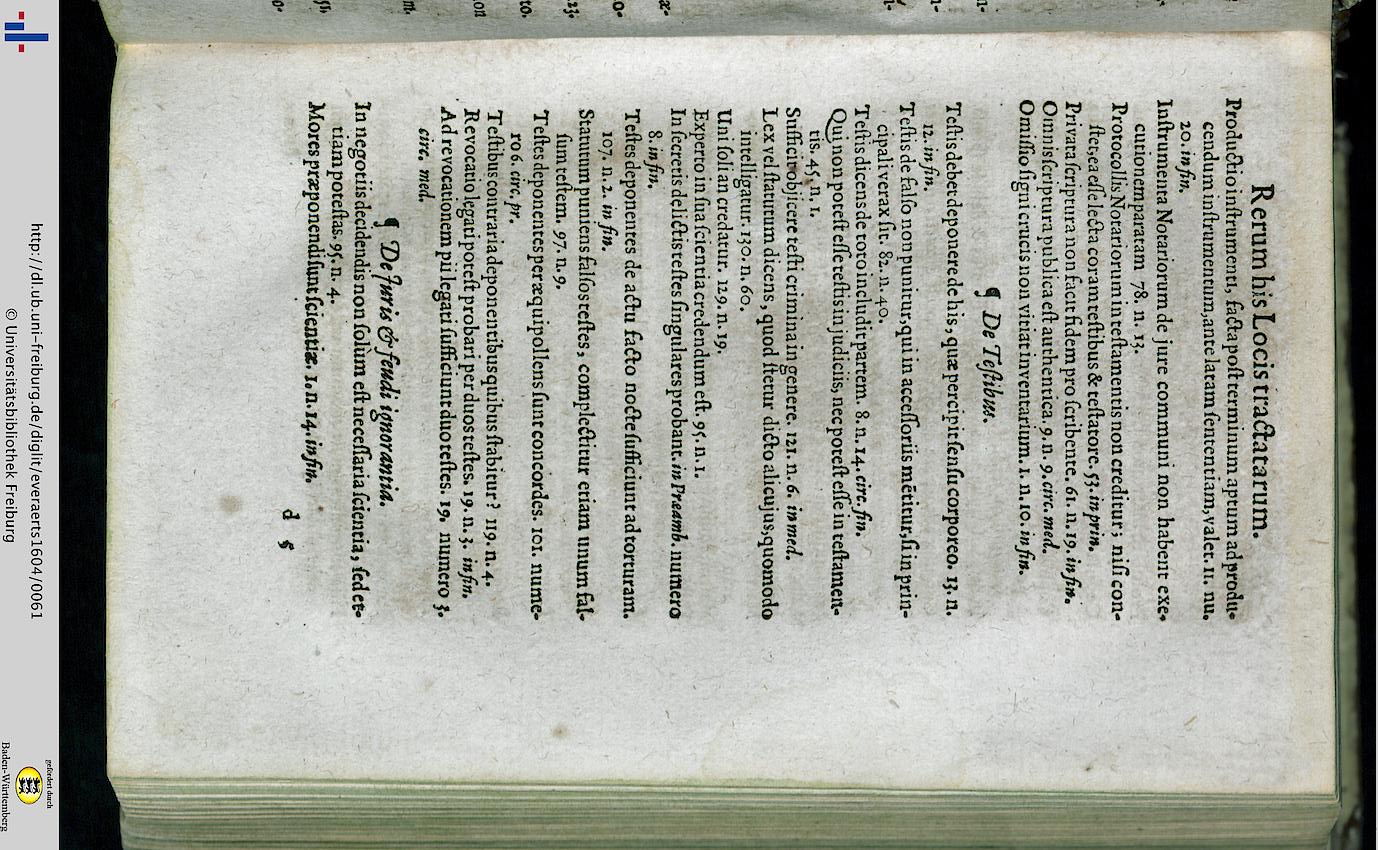 Rerum his Locis tractatarum.
Productio instrumenti, facta post terminum aptum ad produ-
cendum instrumentum, ante latam sententiam, valet. 11. nu.
20. in fin.
Instrumenta Notariorum de jure communi non habent exe-
cutionem paratam 78. n. 13.
Protocollis Notariorum in testamentis non creditur; nisi con-
stet, ea esse lecta coram testibus & testatore. 53. in prin.
Privata scriptura non facit fidem pro scribente. 61. n. 19. in fin.
Omnis scriptura publica est authentica. 9. n. 9. circ. med.
Omissio signi crucis non vitiat inventarium. 1. n. 10. in fin.
¶ De Testibus.
Testis debet deponere de his, quæ percipit sensu corporeo. 13. n.
12. in fin.
Testis de falso non punitur, qui in accessoriis mētitur, si in prin-
cipali verax sit. 82. n. 40.
Testis dicens de toto includit partem. 8. n. 14. circ. fin.
Qui non potest esse testis in judiciis, nec potest esse in testamen-
tis. 45. n. 1.
Sufficit objicere testi crimina in genere. 121. n. 6. in med.
Lex vel statutum dicens, quod stetur dicto alicujus, quomodo
intelligatur. 130. n. 60.
Uni soli an credatur. 129. n. 19.
Experto in sua scientia credendum est. 95. n. 1.
In secretis delictis testes singulares probant. in Præamb. numero
8. in fin.
Testes deponentes de actu facto nocte sufficiunt ad torturam.
107. n. 2. in fin.
Statutum puniens falsos testes, complectitur etiam unum fal-
sum testem. 97. n. 9.
Testes deponentes per æquipollens sunt concordes. 101. nume-
ro 6. circ. pr.
Testibus contraria deponentibus quibus stabitur? 119. n. 4.
Revocatio legati potest probari per duos testes. 19. n. 3. in fin.
Ad revocationem pii legati sufficiunt duo testes. 19. numero 3.
circ. med.
¶ De Juris & feudi ignorantia.
In negotiis decidendis non solùm est necessaria scientia, sed et-
tiam potestas. 95. n. 4.
Mores præponendi sunt scientiæ. 1. n. 14. in fin.
d 5
http://dl.ub.uni-freiburg.de/diglit/everaerts1604/0061
© Universitätsbibliothek Freiburg
gefördert durch
Baden-Württemberg